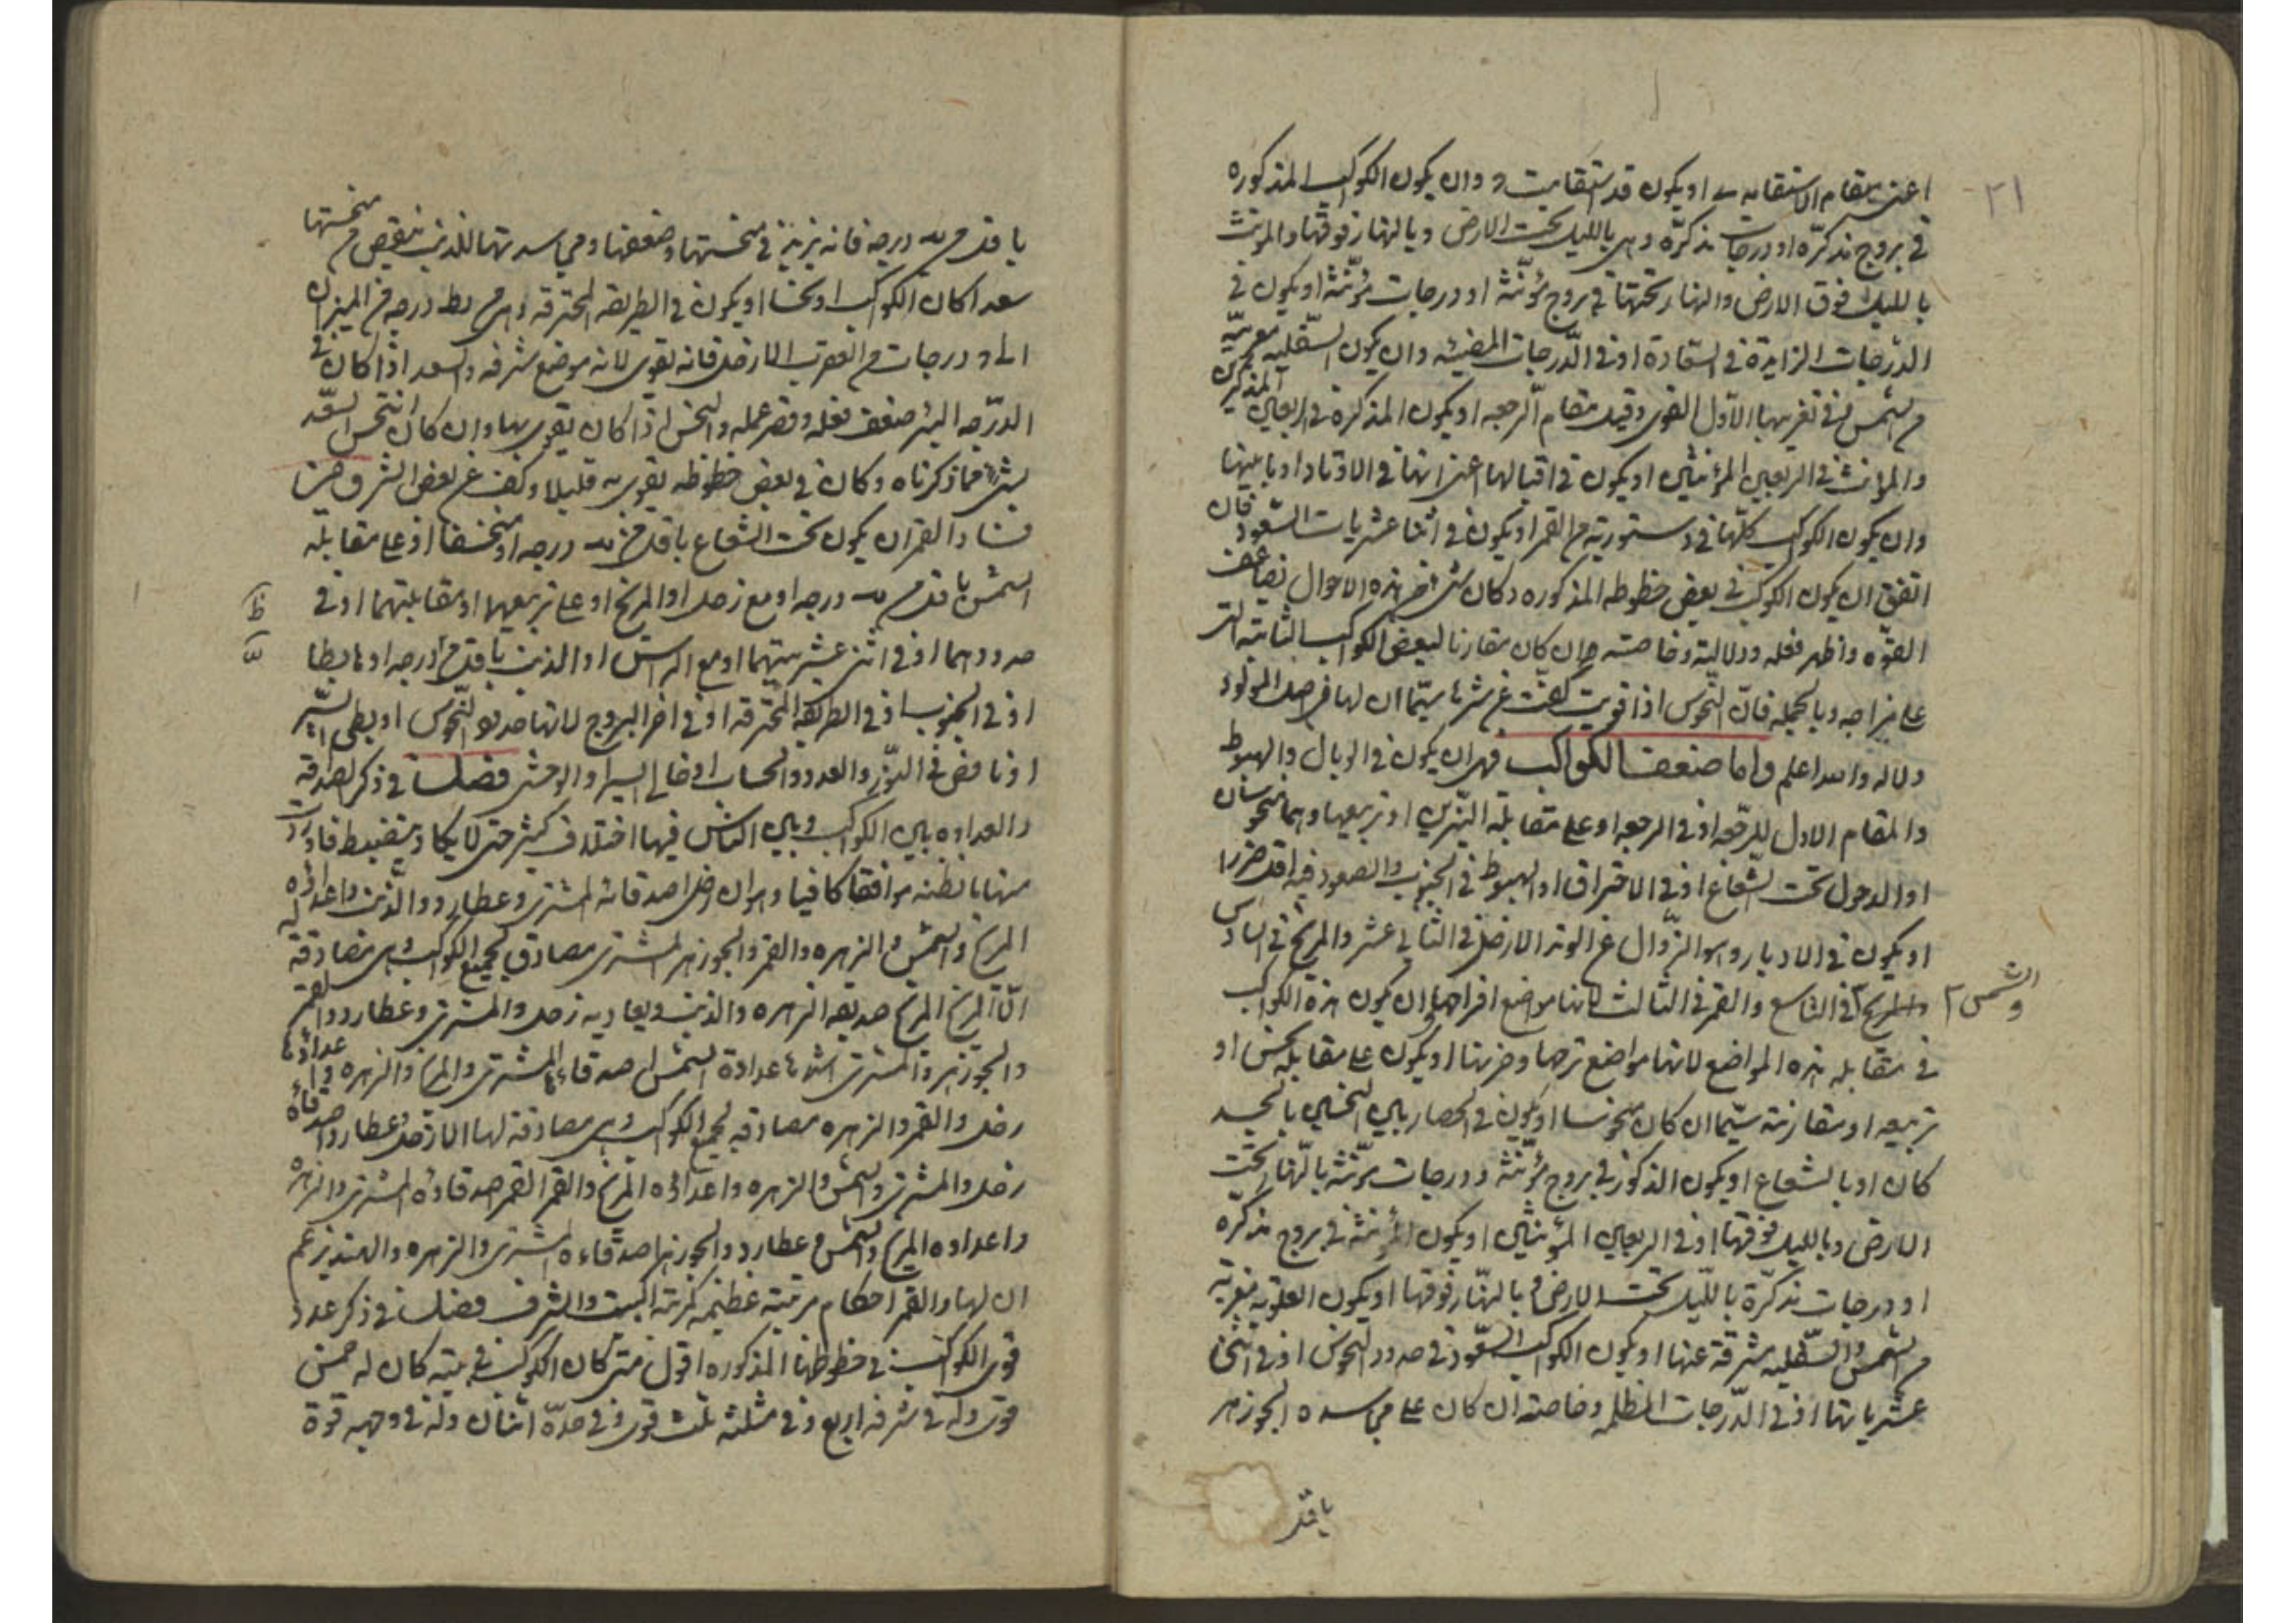 ٢١
اعنى مقام الاستقامه او يكون قد استقامت وان يكون الكواكب المذكوره
فى بروج مذكرّه او درجات مذكرّه وهى بالليل تحت الارض وبالنهار فوقها والمونث
بالليل فوق الارض والنهار تحتها فى بروج مؤنّثه او درجات مؤنّثة او يكون فى
الدّرجات الزايدة فى السّعادة او فى الدّرجات المضيئه وان يكون السّفليه مغربيّه
من الشمس فى تغريبها الاوّل القوى وقبل مقام الرجعه او يكون المذكرة فى الربعين المذكرين
والمؤنث فى الربعين المؤنثين او يكون فى اقبالها اعنى انها فى الاوتاد او ما يليها
وان يكون الكواكب كلّها فى دستوريّة من القمر او يكون فى اثنا عشريات السّعود فان
اتفق ان يكون الكوكب فى بعض حظوظه المذكوره وكان شئ من هذه الاحوال تضاعف
القوّه واظهر فعله ودلالته وخاصته وان كان مقارنا لبعض الكواكب الثابته التى
على مزاجه وبالجمله فانّ النّحوس اذا قويت كفّت عن شرها سيّما ان لها فى اصل المولود
دلاله والله اعلم واما ضعف الكواكب فهى ان يكون فى الوبال والهبوط
والمقام الاول للرجعه او فى الرجعه او على مقابلة النيّرين او تربيعها وهما منحوسان
او الدخول تحت الشّعاع او فى الاحتراق او الهبوط فى الجنوب والصعود فيه اقل ضررا
او يكون فى الادبار وهو الزّوال عن الوتد الا زحل فى الثانى عشر والمريخ فى السادس
والشمس فى التاسع والقمر فى الثالث لانها مواضع افراحها وان يكون هذه الكواكب
فى مقابله هذه المواضع لانها مواضع ترحها وحزنها او يكون على مقابله نحس او
تربيعه او مقارنته سيّما ان كان منحوسا او يكون فى الحصار بين النحسين بالجسد
كان او بالشعاع او يكون الذكور فى بروج مؤنّثه ودرجات مؤنّثه بالنّهار تحت
الارض وبالليل فوقها او فى الربعين المؤنثين او يكون المؤنثة فى بروج مذكرّه
او درجات مذكرّة بالليل تحت الارض وبالنّهار فوقها او يكون العلويه مغربيّه
من الشمس والسّفليه مشرقة عنها او يكون الكواكب السّعود فى حدود النحوس او فى اثنى
عشرياتها او فى الدّرجات المظلمه وخاصته ان كان على مجاسده الجوزهر
باقل
باقل من درجه فانه يزيد فى منحستها وضعفها ومجاسدتها للذنب ينقص من منحستها
سعدا كان الكوكب او نحسا او يكون فى الطريقه المحترقه وهى من يط درجه من الميزان
الى درجات من العقرب الا زحل فانه يقوى لانه موضع شرفه والسعد اذا كان فى
الدرّجه البئر ضعف فعله وقصر عمله والنحس اذا كان يقوى بها وان كان انتحس السّعد
بشئ مما ذكرناه وكان فى بعض حظوظه يقوى به قليلا وكف عن بعض الشر
فساد القمر ان يكون تحت الشعاع باقل من درجه او منخسفا او على مقابله
الشمس باقل من درجه او مع زحل او المريخ او على تربيعهما او مقابلتهما او فى
حدودهما او فى اثنى عشريتهما او مع الراس او الذنب باقل من درجه او هابطا
او فى الجنوب او فى الطريقه المحترقه او فى اخر البروج لانها حدود النّحوس او بطى السّير
او ناقص فى النّور والعدد والحساب او خالى السير او الوحشى فصل فى ذكر الصداقه
والعداوه بين الكواكب وبين الناس فيها اختلاف كثير حتى لا يكاد ينضبط فاوردت
منها ما نظنه موافقا كافيا وهو ان زحل اصدقائه المشترى وعطارد والذنب واعدائه
المريخ والشمس والزهره والقمر والجوزهر المشترى مصادق لجميع الكواكب وهى مصادقة له
الّا المريخ المريخ صديقه الزهره والذنب ويعاديه زحل والمشترى وعطارد والقمر
والجوزهر والمشترى اشدها عداوة الشمس اصدقاءها المشترى والمريخ والزهره واعداؤها
زحل والقمر والزهره مصادقه لجميع الكواكب وهى مصادقة لها الا زحل وعطارد اصدقاؤه
زحل والمشترى والشمس والزهره واعداؤه المريخ والقمر القمر اصدقاؤه المشترى والزهره
واعداوه المريخ والشمس وعطارد والجوزهر اصدقاءه المشترى والزهره والهند يزعم
ان لها والقمر احكام مرتبته عظيمه كمرتبة البيت والشرف فصل فى ذكر عدد
قوى الكواكب فى حظوظها المذكوره اقول متى كان الكوكب فى بيته كان له خمس
قوى وله فى شرفه اربع وفى مثلثه ثلث قوى وفى حدّه اثنان وله فى وجهه قوة